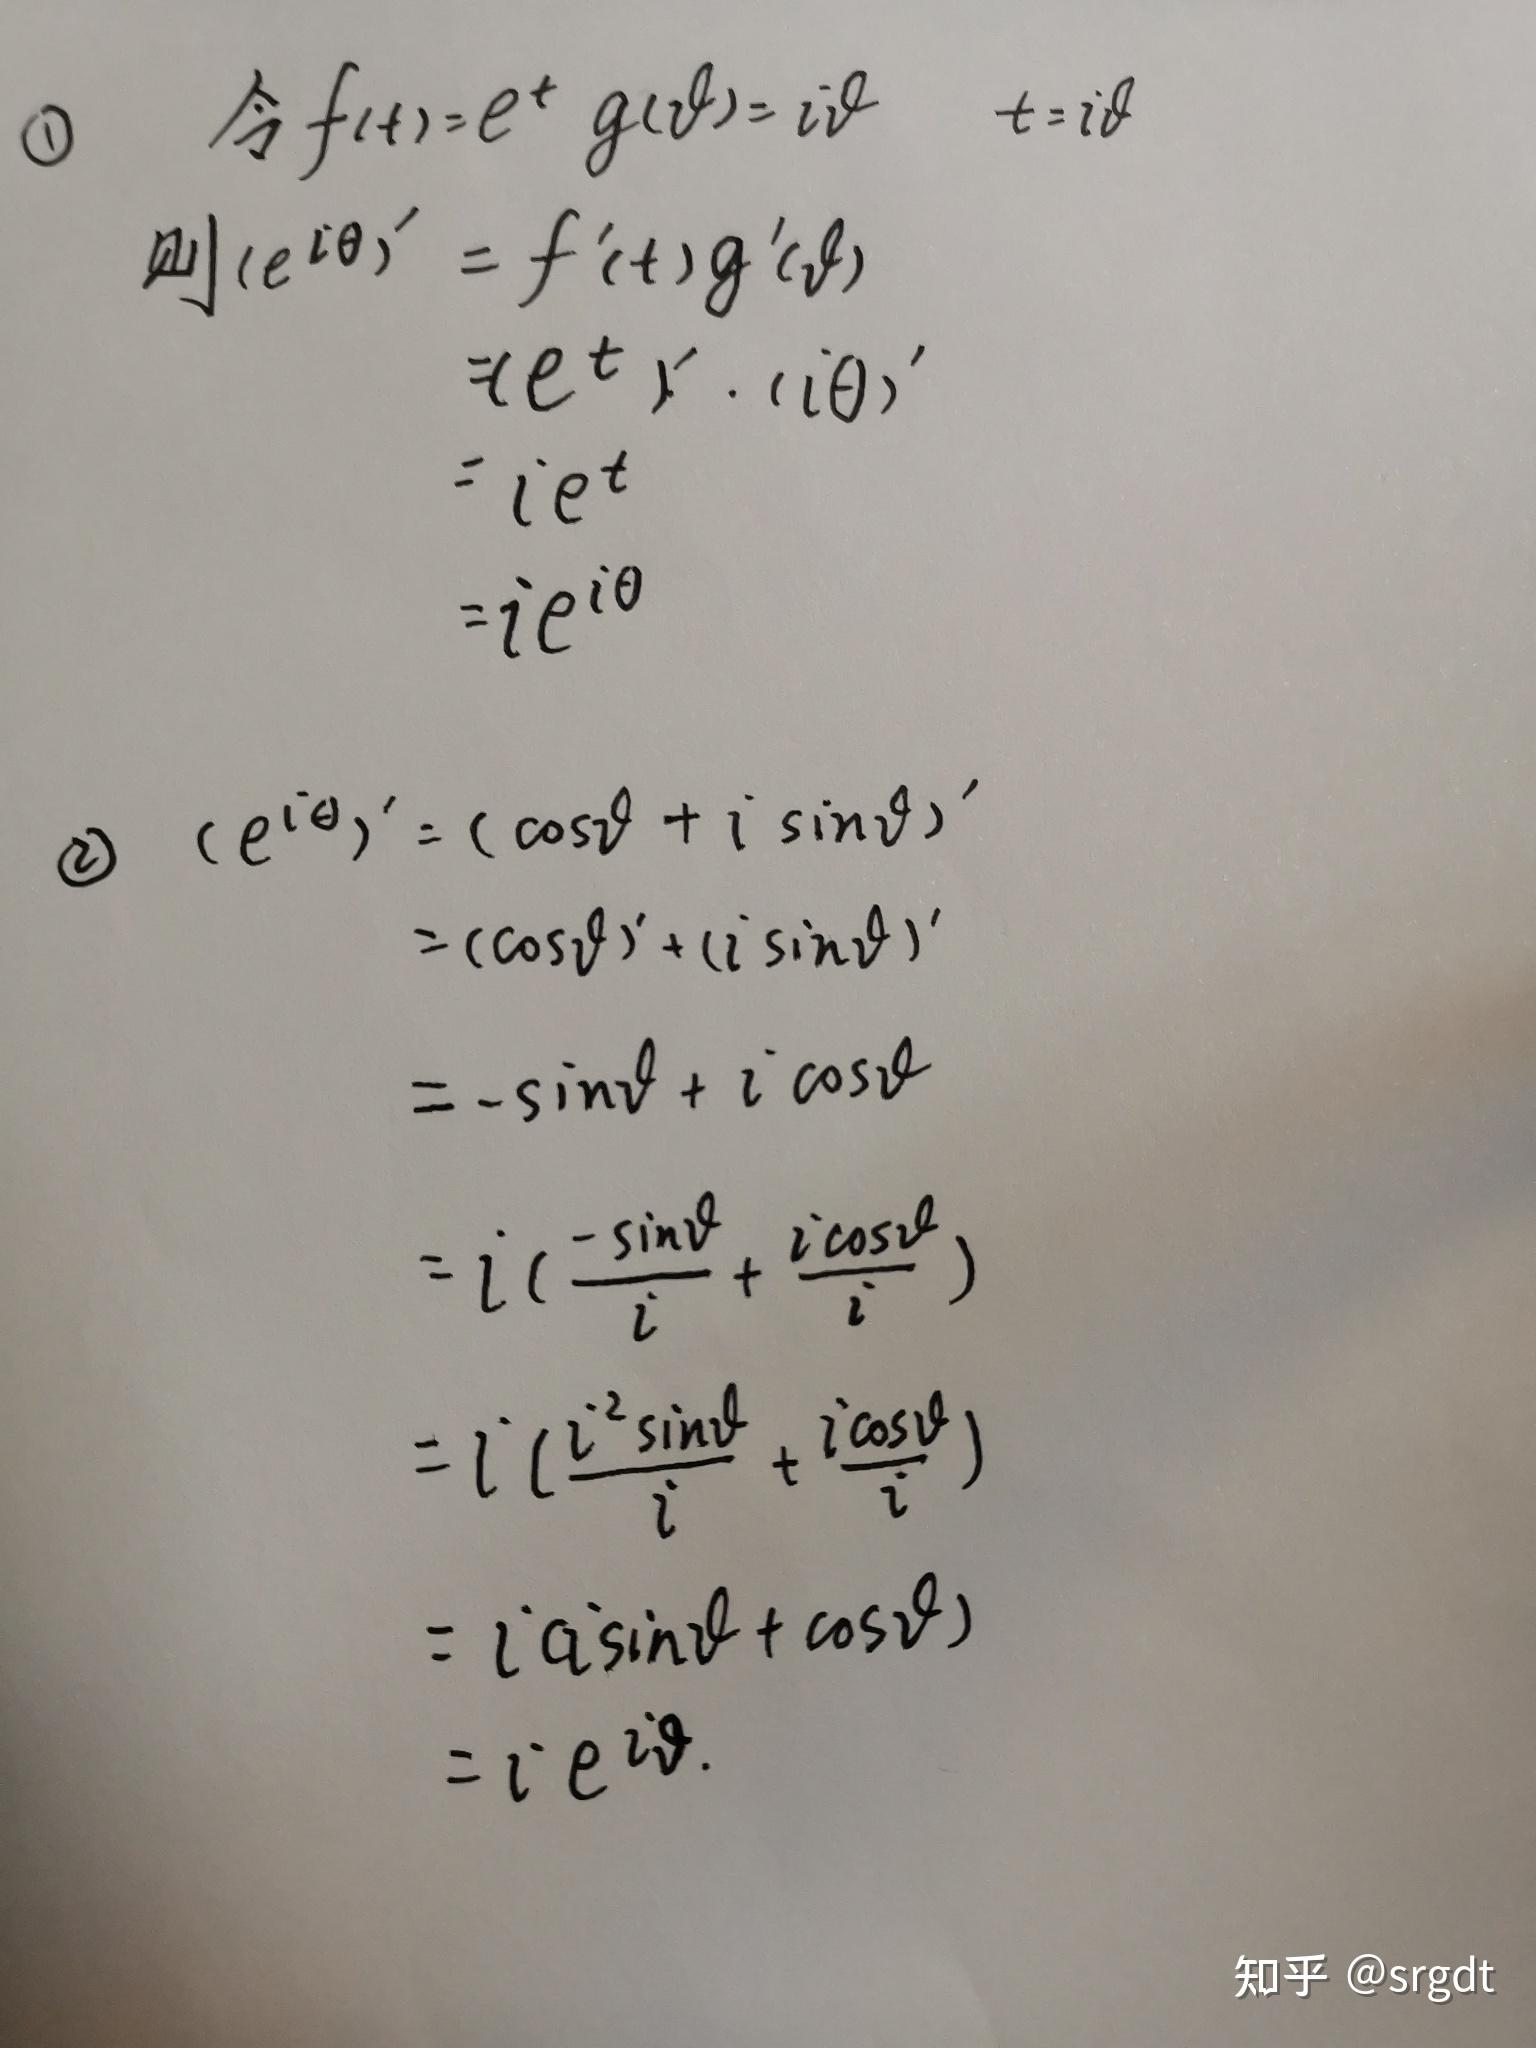 ① 令 f(t)=e^t g(ϑ)=iϑ t=iϑ
则(e^{iθ})′ = f′(t)g′(ϑ)
=(e^t)′·(iθ)′
=ie^t
=ie^{iθ}
② (e^{iθ})′=(cosϑ+i sinϑ)′
=(cosϑ)′+(i sinϑ)′
=-sinϑ+i cosϑ
=i(\frac{-sinϑ}{i}+\frac{i cosϑ}{i})
=i(\frac{i^2 sinϑ}{i}+\frac{i cosϑ}{i})
=i(i sinϑ+cosϑ)
=ie^{iϑ}.
知乎 @srgdt